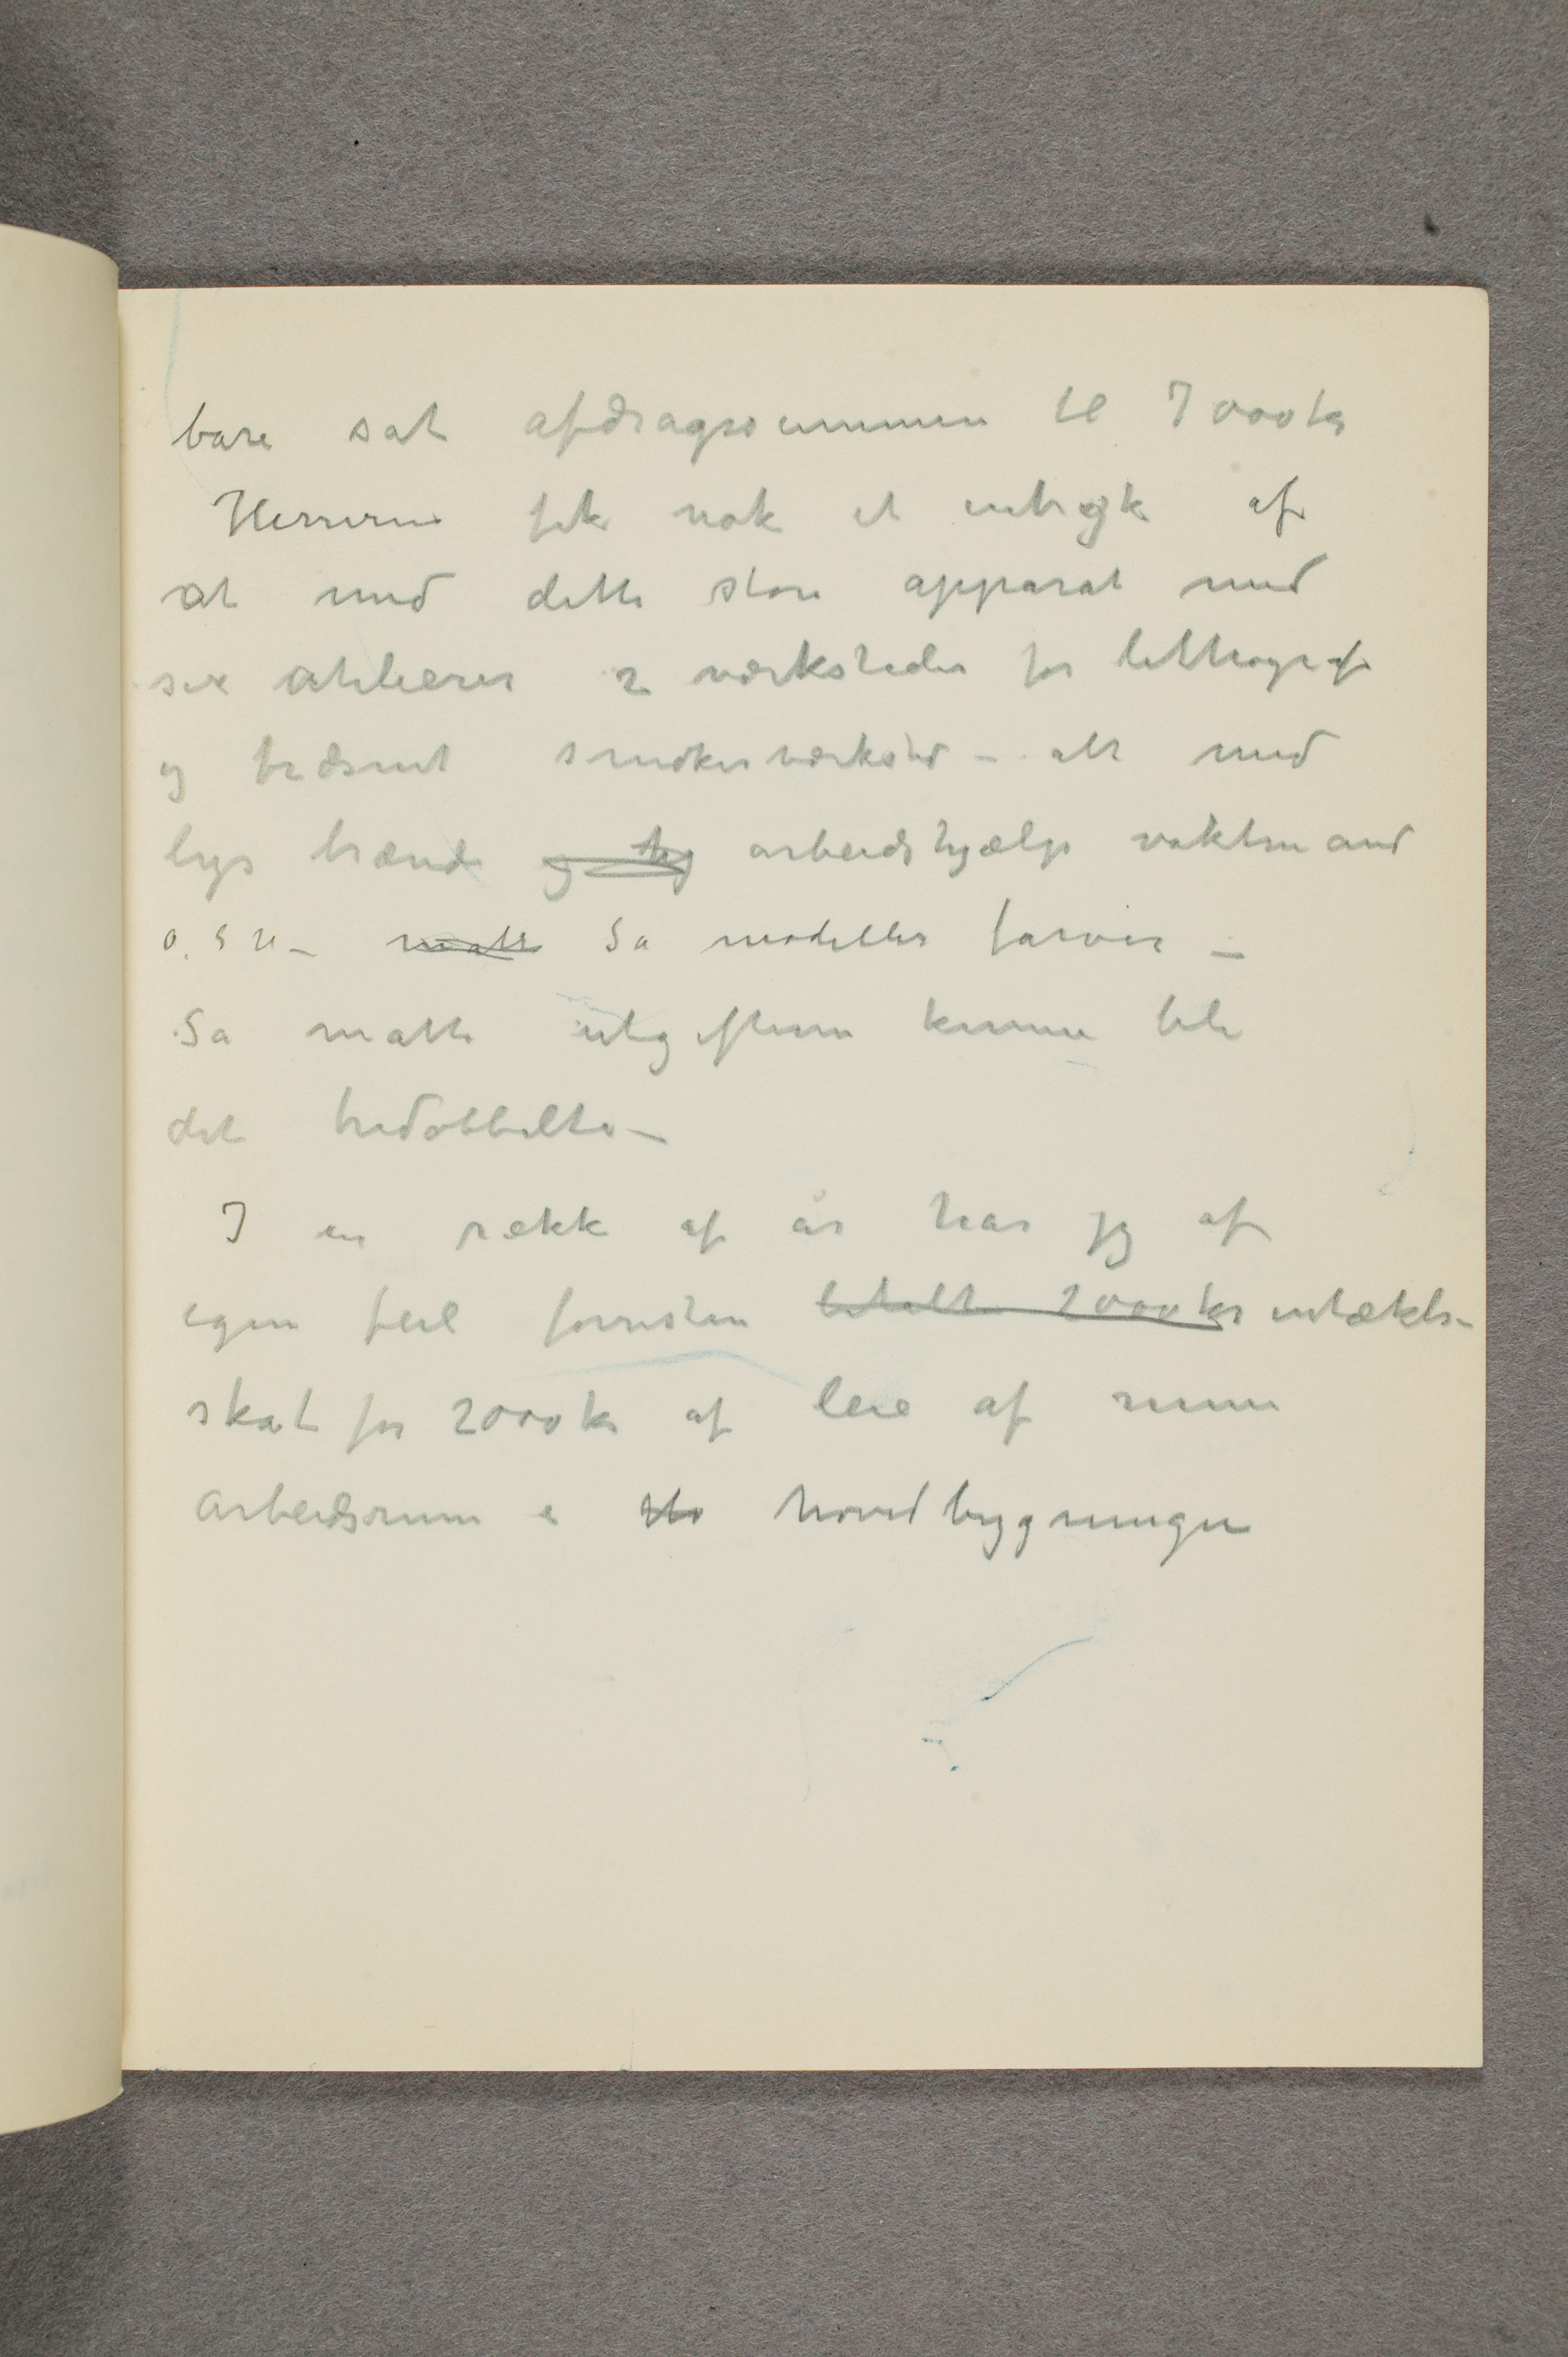 bare sat afdragssummen til 7000 kr
Herrerne fik nok et intryk af
at med dette store apparat med
sex atelierer 2 værksteder for lithografi
og træsnit snekkerværksted – alt med
lys brænde og arbeidshjælp vaktmand
o. s v. – måtte Sa modeller farver –
Sa matte utgifterne kunne bli
det tredobbelte –
I en rekke af år har jeg af
egen feil forresten betalt 2000 kr intækts-
skat for 2000 kr af leie af mine
arbeidsrum i hovedbygningen